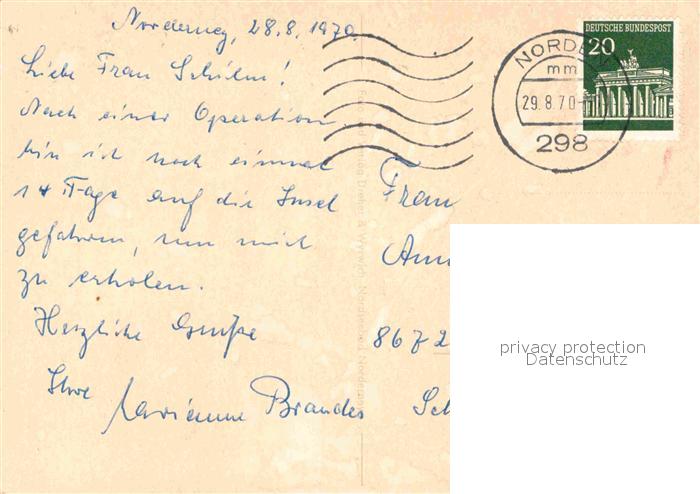 Norderney, 28.8.1970
Liebe Frau Schilm!
Nach einer Operation
bin ich noch einmal
14 Tage auf die Insel
gefahren, um mich
zu erholen.
Herzliche Grüße
Ihre
Marianne Brandes
DEUTSCHE BUNDESPOST
20
NORDEN
mm
29.8.70
298
Frau
Ann
8672
Sel
privacy protection
Datenschutz